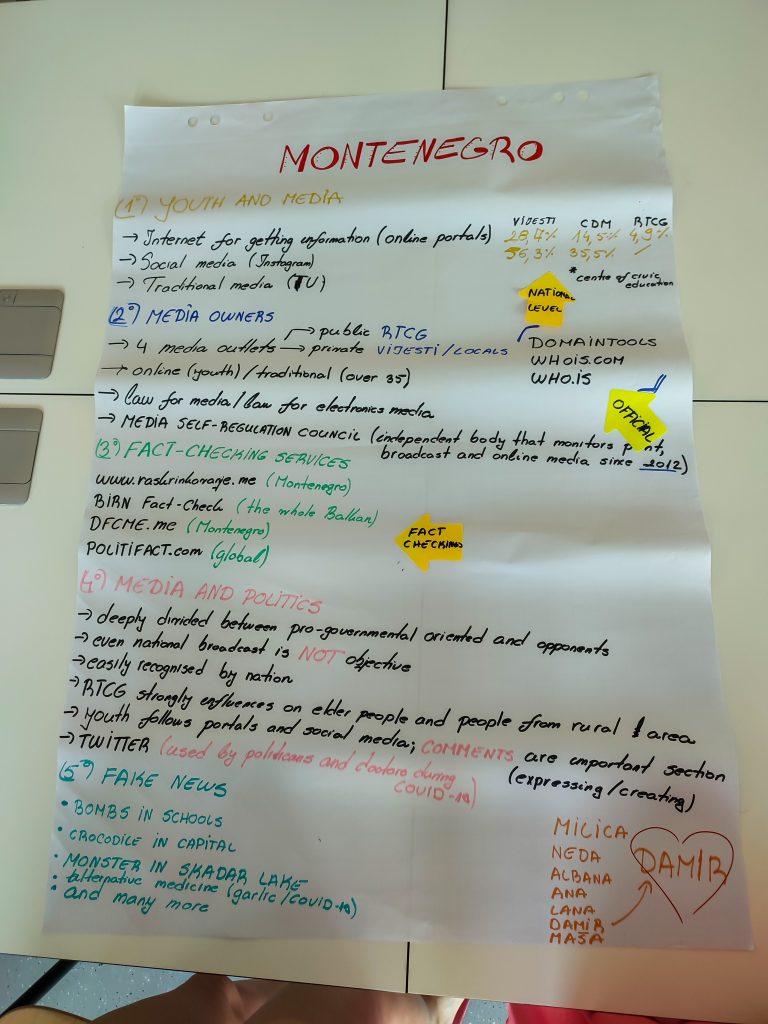 MONTENEGRO
(1°) YOUTH AND MEDIA
→ Internet for getting information (online portals)
→ Social media (Instagram)
→ Traditional media (TV)
VIJESTI CDM RTCG
28,7% 14,5% 4,9%
56,3% 35,5% /
* centre of civic education
NATIONAL LEVEL
(2°) MEDIA OWNERS
→ 4 media outlets → public RTCG
→ private VIJESTI/LOCALS
→ online (youth)/traditional (over 35)
→ law for media/law for electronics media
→ MEDIA SELF-REGULATION COUNCIL (independent body that monitors print,
broadcast and online media since 2012)
DOMAINTOOLS
WHOIS.COM
WHO.IS
OFFICIAL
(3°) FACT-CHECKING SERVICES
www.raskrinkavanje.me (Montenegro)
BIRN Fact-Check (the whole Balkan)
DFCME.me (Montenegro)
POLITIFACT.com (global)
FACT CHECKINGS
(4°) MEDIA AND POLITICS
→ deeply divided between pro-governmental oriented and opponents
→ even national broadcast is NOT objective
→ easily recognised by nation
→ RTCG strongly influences on elder people and people from rural area
→ youth follows portals and social media; COMMENTS are important section
(expressing/creating)
→ TWITTER (used by politicans and doctors during
COVID-19)
(5°) FAKE NEWS
• BOMBS IN SCHOOLS
• CROCODILE IN CAPITAL
• MONSTER IN SKADAR LAKE
• alternative medicine (garlic/COVID-19)
• and many more
MILICA
NEDA
ALBANA
ANA
LANA
DAMIR
MAŠA
DAMIR